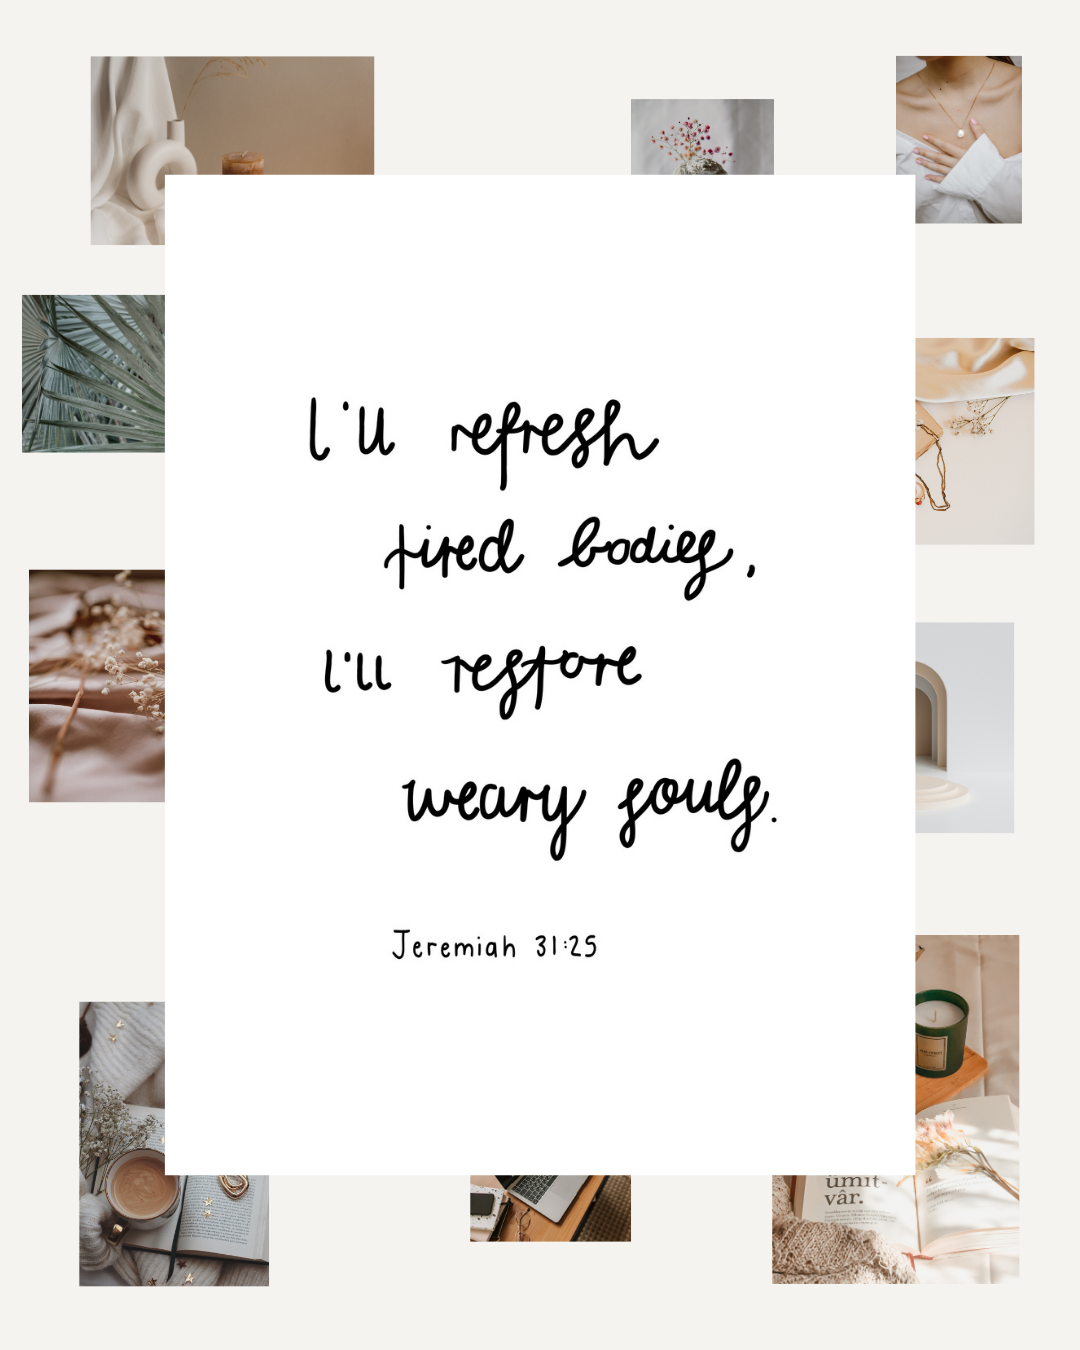 I'll refresh
tired bodies,
I'll restore
weary souls.
Jeremiah 31:25
umit-
vâr.